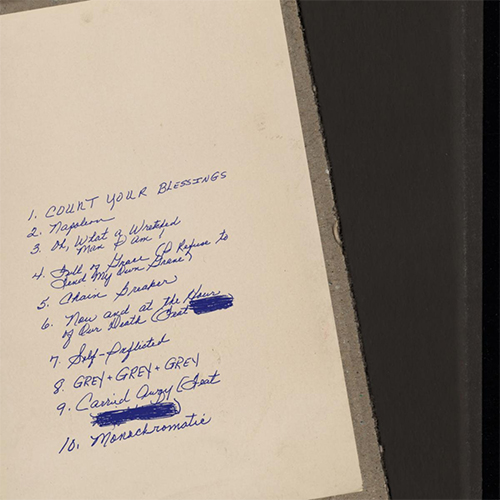 1. COUNT YOUR BLESSINGS
2. Napoleon
3. Oh, What a Wretched
Man I am!
4. Full of Grace (I Refuse to
Tend My Own Grave)
5. Chain Breaker
6. Now and at the Hour
of Our Death (Feat
7. Self-Inflicted
8. GREY + GREY + GREY
9. Carried Away (Feat
10. Monochromatic